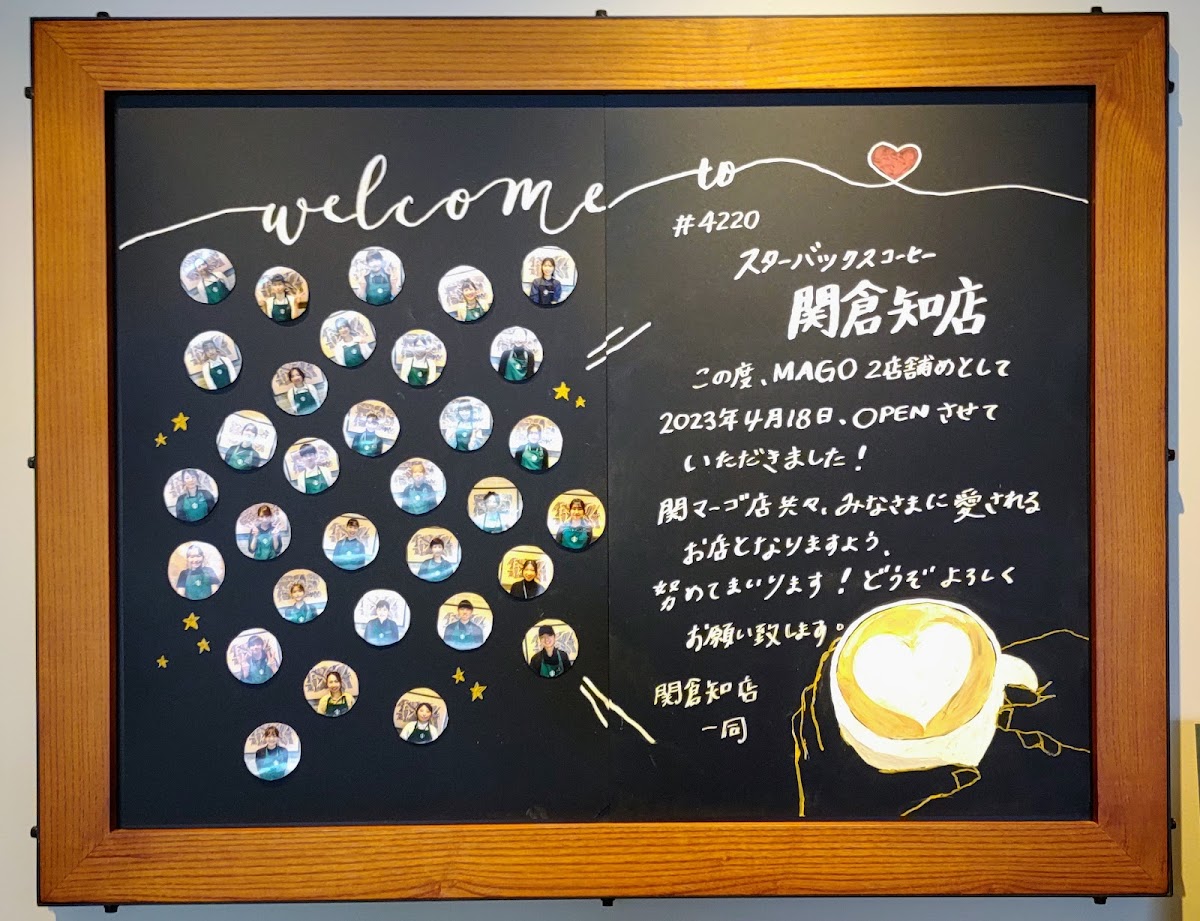 welcome to
#4220
スターバックスコーヒー
関倉知店
この度、MAGO 2店舗めとして
2023年4月18日、OPENさせて
いただきました!
関マーゴ店共々、みなさまに愛される
お店となりますよう、
努めてまいります!どうぞよろしく
お願い致します。
関倉知店
一同